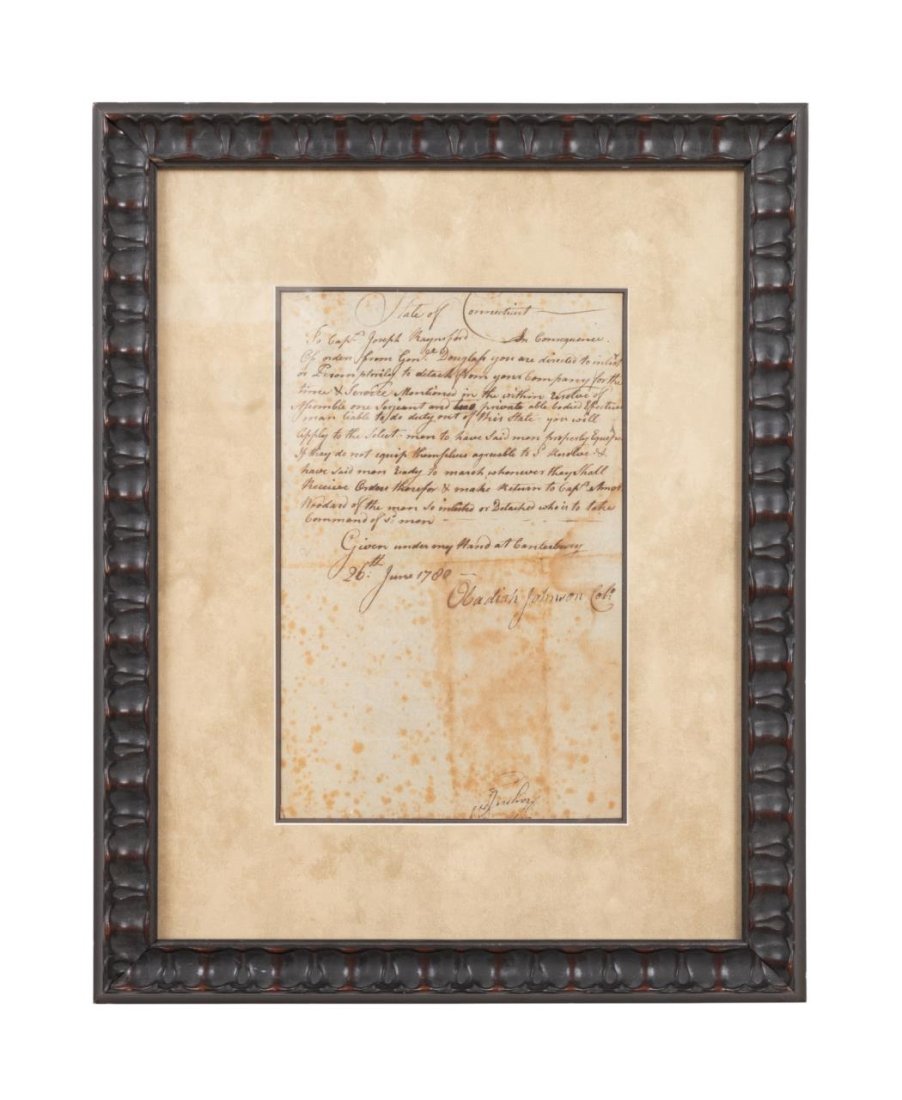 State of Connecticut
To Capt. Joseph Raynsford In Consequence
Of orders from Genl. Douglass you are directed to inlist
or Peremptorily to detach from your Company for the
time & Service Mentioned in the within Resolve of
Assemble one Serjeant and two private able bodied Effective
man liable to do duty out of this State you will
Apply to the Select-men to have said men properly Equip
If they do not equip themselves agreable to Sd. Resolve &
have said men Ready to march whenever they Shall
Receive Orders therefor & make Return to Capt. Amos
Woodard of the men So inlisted or Detached who is to take
Command of Sd. men
Given under my Hand at Canterbury
26th. June 1780
Obadiah Johnson Colo.